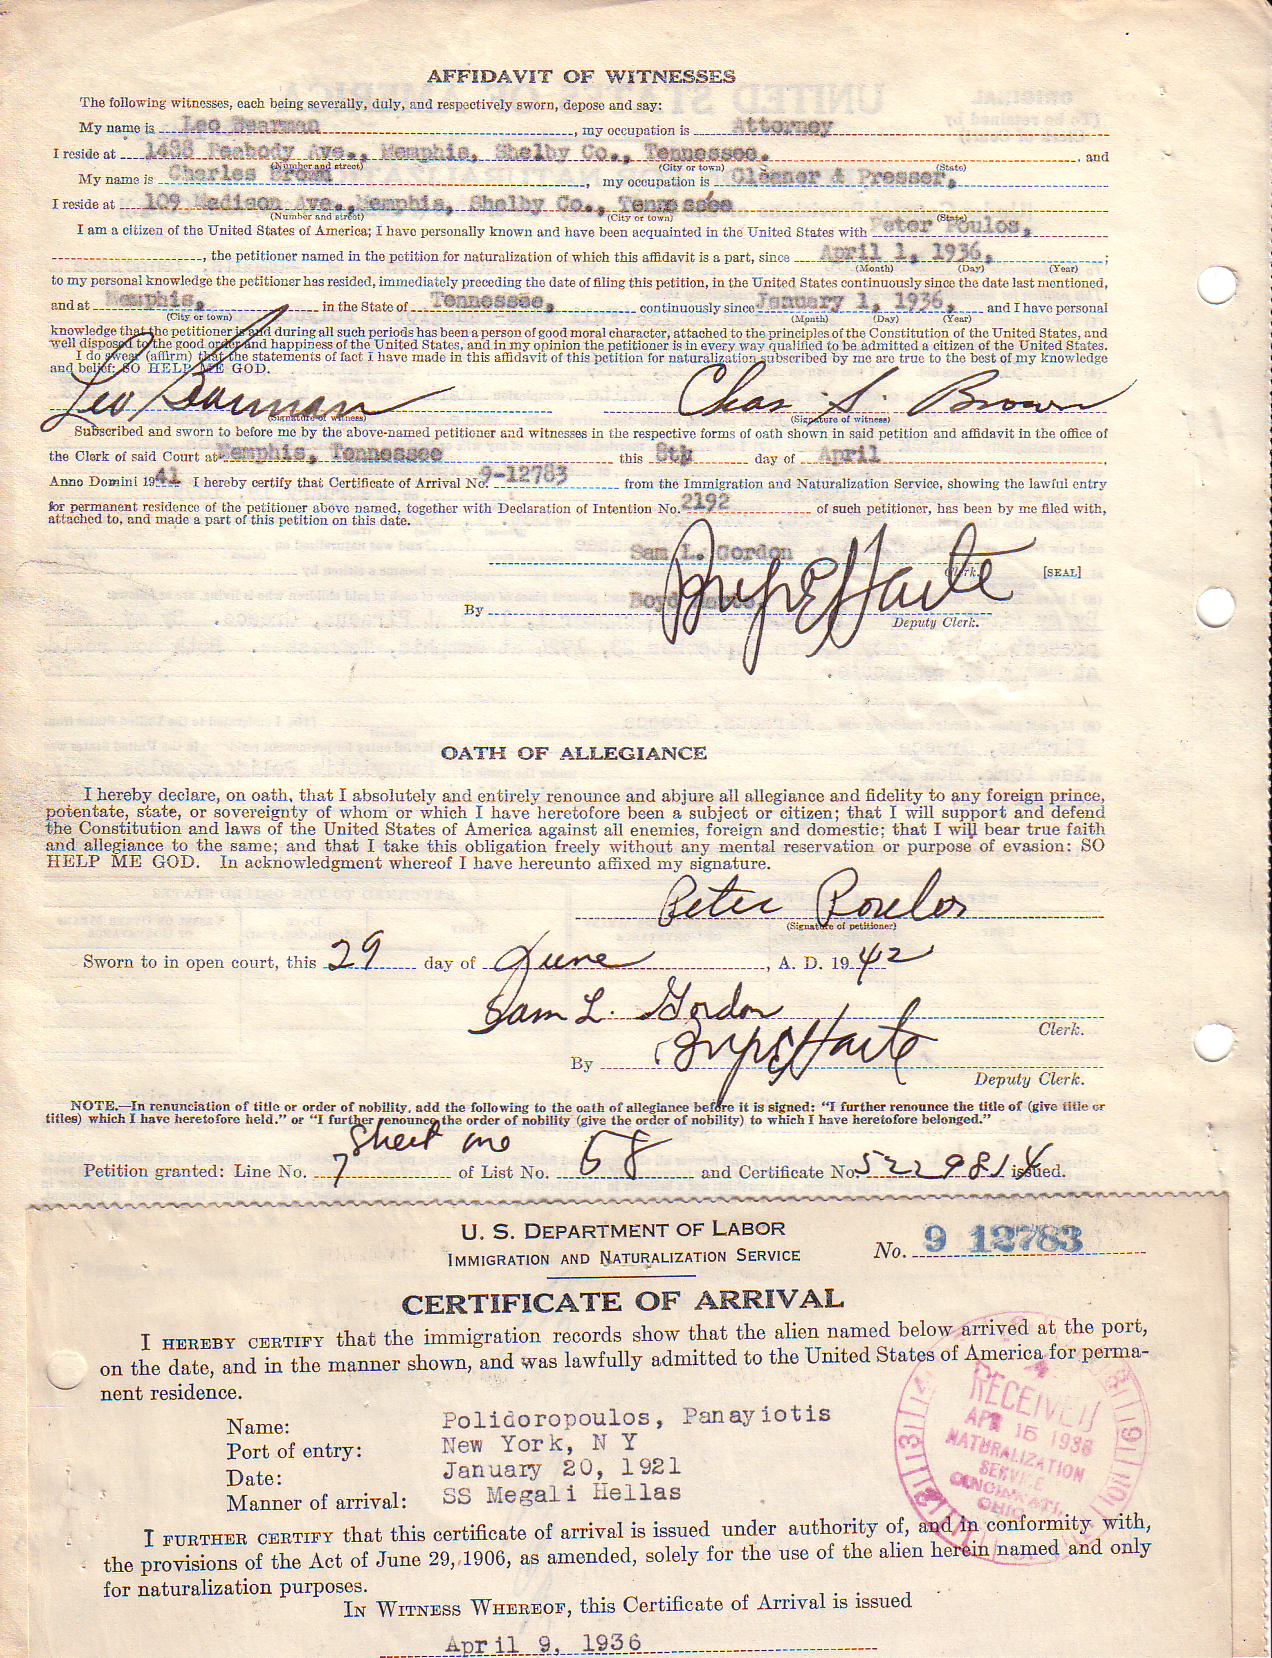 AFFIDAVIT OF WITNESSES
The following witnesses, each being severally, duly, and respectively sworn, depose and say:
My name is Leo Bearman, my occupation is Attorney
I reside at 1438 Peabody Ave., Memphis, Shelby Co., Tennessee. , and
(Number and street) (City or town) (State)
My name is Charles Brown, my occupation is Cleaner & Presser,
I reside at 109 Madison Ave., Memphis, Shelby Co., Tennessee
(Number and street) (City or town) (State)
I am a citizen of the United States of America; I have personally known and have been acquainted in the United States with Peter Poulos,
, the petitioner named in the petition for naturalization of which this affidavit is a part, since April 1, 1936, ;
(Month) (Day) (Year)
to my personal knowledge the petitioner has resided, immediately preceding the date of filing this petition, in the United States continuously since the date last mentioned,
and at Memphis, in the State of Tennessee, continuously since January 1, 1936, and I have personal
(City or town) (Month) (Day) (Year)
knowledge that the petitioner is and during all such periods has been a person of good moral character, attached to the principles of the Constitution of the United States, and
well disposed to the good order and happiness of the United States, and in my opinion the petitioner is in every way qualified to be admitted a citizen of the United States.
I do swear (affirm) that the statements of fact I have made in this affidavit of this petition for naturalization subscribed by me are true to the best of my knowledge
and belief: SO HELP ME GOD.
Leo Bearman Chas S. Brown
(Signature of witness) (Signature of witness)
Subscribed and sworn to before me by the above-named petitioner and witnesses in the respective forms of oath shown in said petition and affidavit in the office of
the Clerk of said Court at Memphis, Tennessee this 8th day of April ,
Anno Domini 1941 I hereby certify that Certificate of Arrival No. 9-12783 from the Immigration and Naturalization Service, showing the lawful entry
for permanent residence of the petitioner above named, together with Declaration of Intention No. 2192 of such petitioner, has been by me filed with,
attached to, and made a part of this petition on this date.
Sam L. Gordon
Clerk. [SEAL]
By Boyd
Deputy Clerk.
OATH OF ALLEGIANCE
I hereby declare, on oath, that I absolutely and entirely renounce and abjure all allegiance and fidelity to any foreign prince,
potentate, state, or sovereignty of whom or which I have heretofore been a subject or citizen; that I will support and defend
the Constitution and laws of the United States of America against all enemies, foreign and domestic; that I will bear true faith
and allegiance to the same; and that I take this obligation freely without any mental reservation or purpose of evasion: SO
HELP ME GOD. In acknowledgment whereof I have hereunto affixed my signature.
Peter Poulos
(Signature of petitioner)
Sworn to in open court, this 29 day of June , A. D. 1942
Sam L. Gordon
Clerk.
By
Deputy Clerk.
NOTE.—In renunciation of title or order of nobility, add the following to the oath of allegiance before it is signed: "I further renounce the title of (give title or
titles) which I have heretofore held." or "I further renounce the order of nobility (give the order of nobility) to which I have heretofore belonged."
Sheet no
Petition granted: Line No. 7 of List No. 58 and Certificate No. 5229814 issued.
U. S. DEPARTMENT OF LABOR
IMMIGRATION AND NATURALIZATION SERVICE
No. 9 12783
CERTIFICATE OF ARRIVAL
I HEREBY CERTIFY that the immigration records show that the alien named below arrived at the port,
on the date, and in the manner shown, and was lawfully admitted to the United States of America for perma-
nent residence.
Name: Polidoropoulos, Panayiotis
Port of entry: New York, N Y
Date: January 20, 1921
Manner of arrival: SS Megali Hellas
RECEIVED
APR 15 1936
NATURALIZATION
SERVICE
CINCINNATI,
OHIO
I FURTHER CERTIFY that this certificate of arrival is issued under authority of, and in conformity with,
the provisions of the Act of June 29, 1906, as amended, solely for the use of the alien herein named and only
for naturalization purposes.
IN WITNESS WHEREOF, this Certificate of Arrival is issued
April 9, 1936